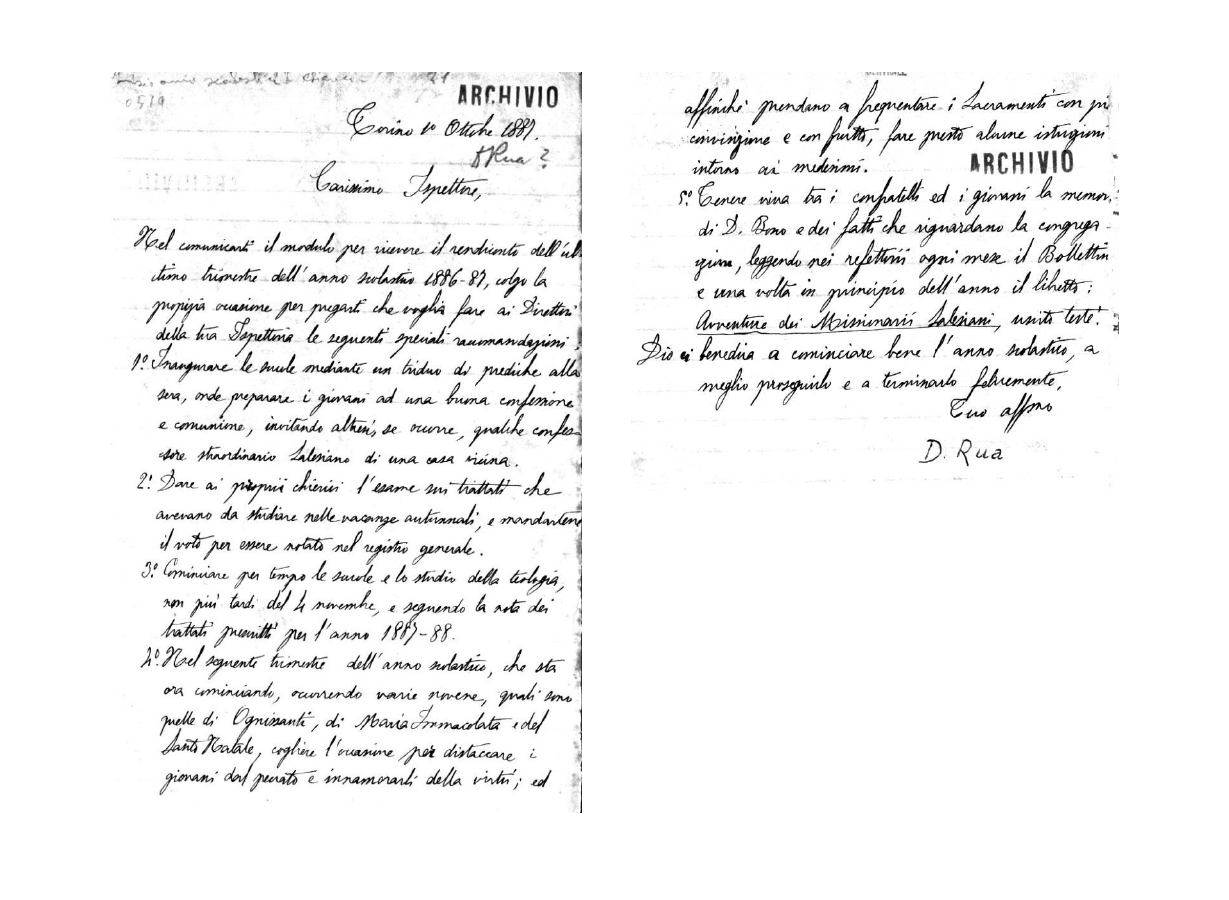 0519
ARCHIVIO
Torino 1º Ottobre 1887.
D Rua ?
Carissimo Ispettore,
Nel comunicarti il modulo per ricevere il rendiconto dell'ul-
timo trimestre dell'anno scolastico 1886-87, colgo la
propizia occasione per pregarti che voglia fare ai Direttori
della tua Ispettoria le seguenti speciali raccomandazioni:
1º. Inaugurare le scuole mediante un triduo di prediche alla
sera, onde preparare i giovani ad una buona confessione
e comunione, invitando altresì, se occorre, qualche confes-
sore straordinario Salesiano di una casa vicina.
2º. Dare ai proprii chierici l'esame sui trattati che
avevano da studiare nelle vacanze autunnali, e mandartene
il voto per essere notato nel registro generale.
3º. Cominciare per tempo le scuole e lo studio della teologia,
non più tardi del 4 novembre, e seguendo la nota dei
trattati prescritti per l'anno 1887-88.
4º. Nel seguente trimestre dell'anno scolastico, che sta
ora cominciando, occorrendo varie novene, quali sono
quelle di Ognissanti, di Maria Immacolata e del
Santo Natale, cogliere l'occasione per distaccare i
giovani dal peccato e innamorarli della virtù; ed
affinchè prendano a frequentare i Sacramenti con più
convinzione e con frutto, fare presto alcune istruzioni
intorno ai medesimi.
ARCHIVIO
5º. Tenere viva tra i confratelli ed i giovani la memor.
di D. Bosco e dei fatti che riguardano la congrega-
zione, leggendo nei refettorii ogni mese il Bollettin
e una volta in principio dell'anno il libretto:
Avventure dei Missionarii Salesiani, uscito testè.
Dio ci benedica a cominciare bene l'anno scolastico, a
meglio proseguirlo e a terminarlo felicemente.
Tuo affmo
D. Rua